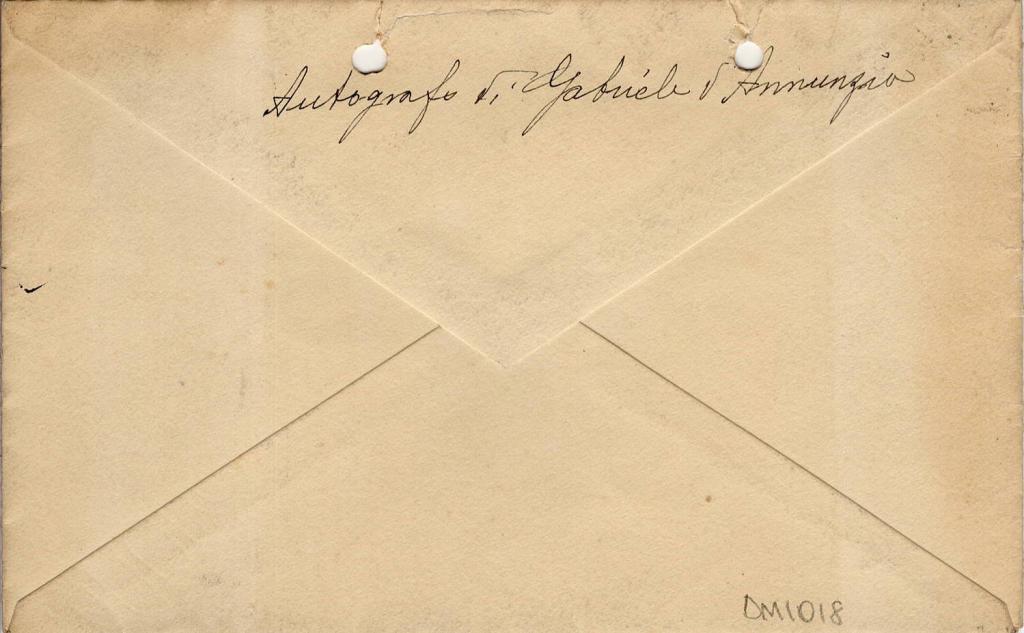 Autografo di Gabriele d'Annunzio
DM1018